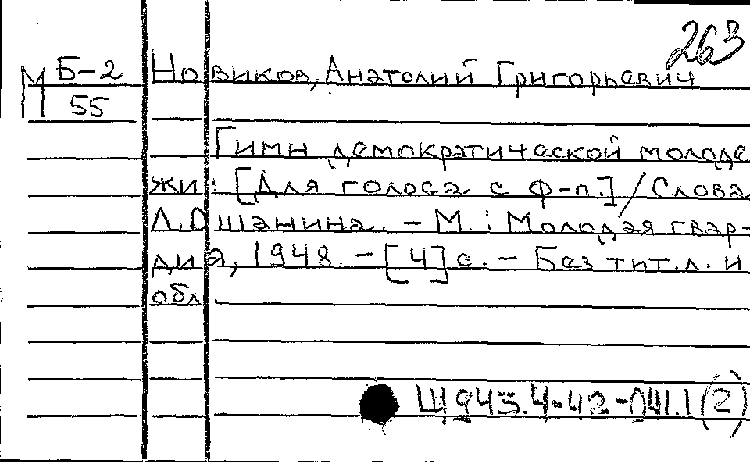 263
М Б-2 Новиков, Анатолий Григорьевич
55
Гимн демократической молоде
жи: [Для голоса с ф-п.] / Слова
Л. Ошанина. - М.: Молодая гвар-
дия, 1948. - [4] с. - Без тит. л. и
обл
Щ945.4-42-041.1(2)